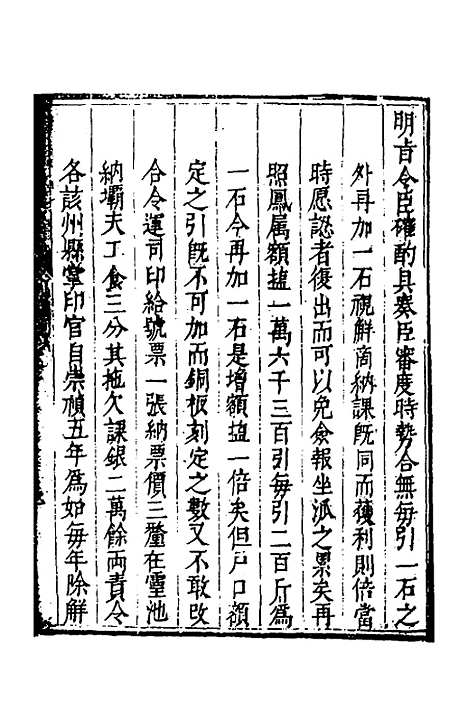 明旨令臣確酌具奏臣審度時勢合無每引一石之
外再加一石視鮮商納課旣同而獲利則倍當
時愿認者復出而可以免僉報坐派之累矣再
照鳳属額𥂐一萬六千三百引每引二百斤爲
一石今再加一石是增額𥂐一倍矣但戸口額
定之引旣不可加而銅板刻定之數又不敢改
合令運司印給號票一張納票價三釐在𩆜池
納壩夫工食三分其拖欠課銀二萬餘両責令
各該州縣掌印官自崇禎五年爲始每年除解